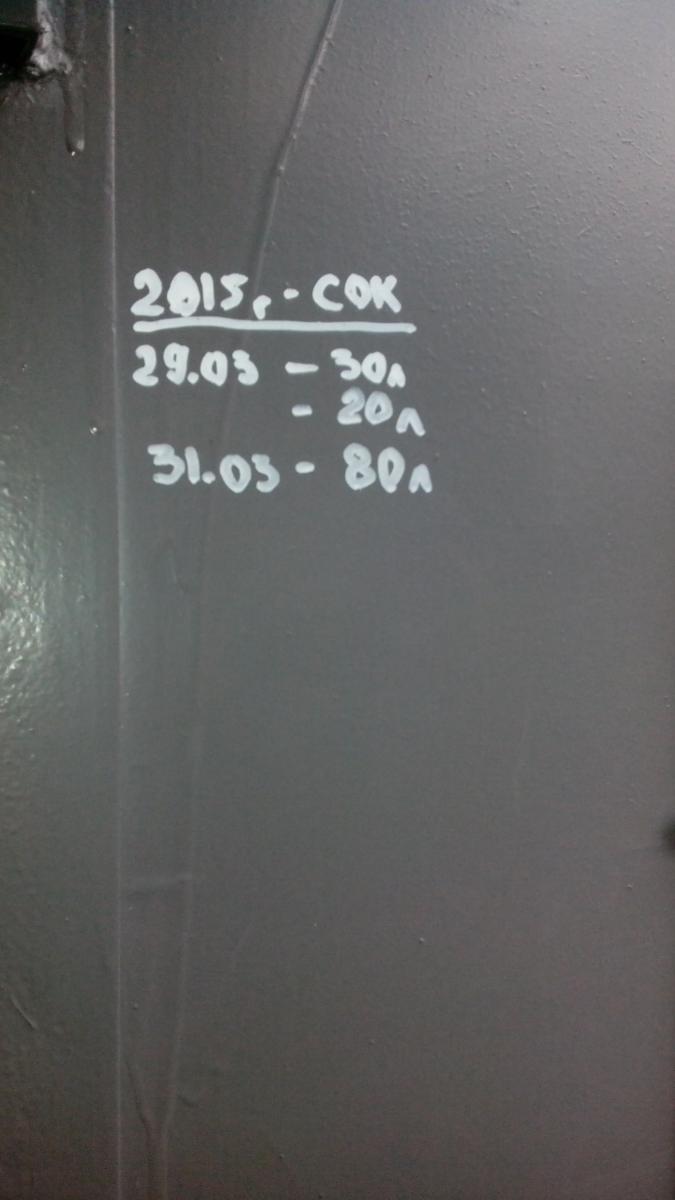 2015г. - СОК
29.03 - 30л
- 20л
31.03 - 80л